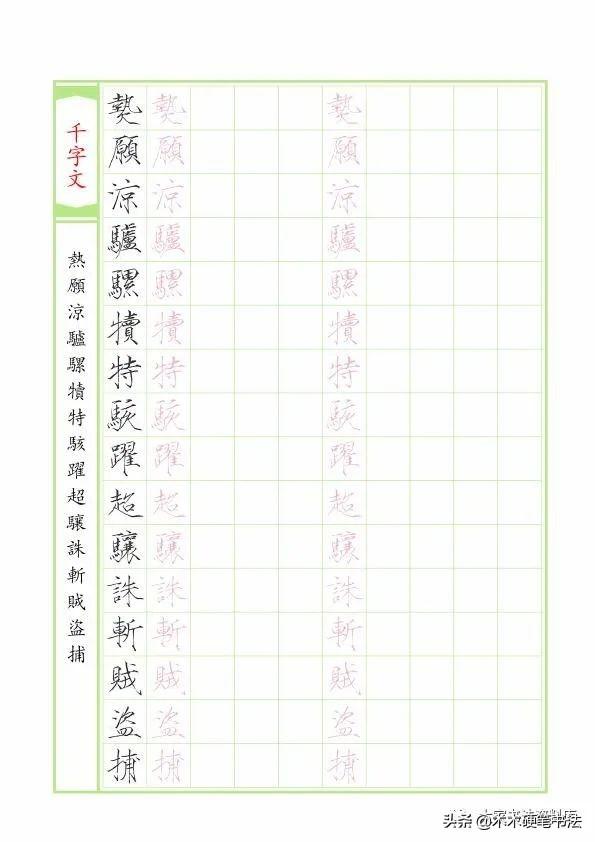 千字文
熱願涼驢騾犢特駭躍超驤誅斬賊盜捕
熱願涼驢騾犢特駭躍超驤誅斬賊盜捕
熱願涼驢騾犢特駭躍超驤誅斬賊盜捕
熱願涼驢騾犢特駭躍超驤誅斬賊盜捕
头条 @木木硬笔书法